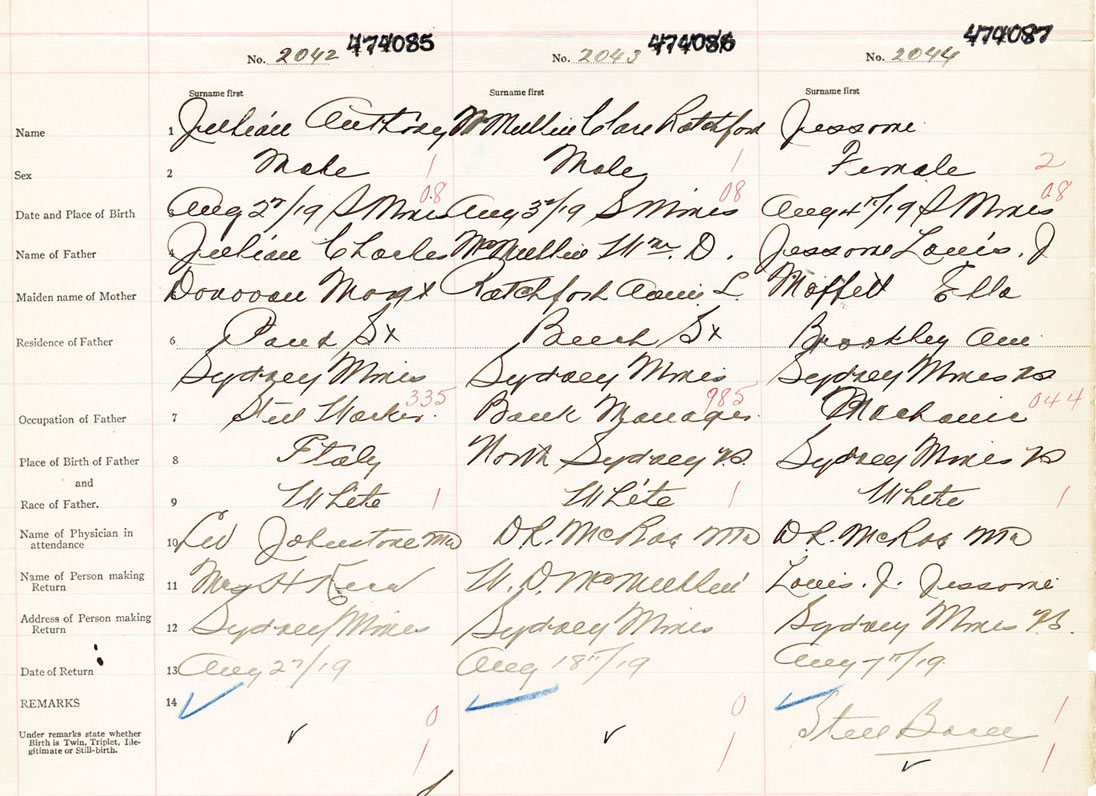 474085 474086 474087
No. 2042 No. 2043 No. 2044
Surname first Surname first Surname first
Name 1 Jullian Anthony McMullin Clare Ratchford Jessome
Sex 2 Male 1 Male 1 Female 2
08 08 08
Date and Place of Birth Aug 2nd/19 S Mines Aug 3rd/19 S Mines Aug 4th/19 S Mines
Name of Father 4 Jullian Charles McMullin Wm. D. Jessome Louis. J
Maiden name of Mother Donovan Margt Ratchford Annie L Moffett Ella
Residence of Father 6 Pond St Beech St Brookley Ave
Sydney Mines Sydney Mines Sydney Mines NS
335 985 044
Occupation of Father 7 Steel Worker Bank Manager Mechanic
Place of Birth of Father 8 Italy North Sydney NS Sydney Mines NS
and
Race of Father. 9 White 1 White 1 White 1
Name of Physician in
attendance 10 Johnstone MD DR. McRae MD DR. McRae MD
Name of Person making
Return 11 W. D. McMullin Louis. J. Jessome
Address of Person making
Return 12 Sydney Mines Sydney Mines Sydney Mines NS.
Date of Return 13 Aug 27/19 Aug 18th/19 Aug 7th/19
REMARKS 14
0 0 1
Under remarks state whether
Birth is Twin, Triplet, Ille-
gitimate or Still-birth.
Still Born
1 1 1